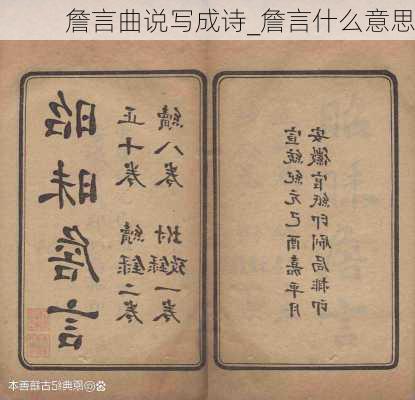 詹言曲说写成诗_詹言什么意思
昭昧詹言
正十卷 續錄二卷
續八卷 坿錄一卷
宣統紀元己酉嘉平月
安徽官紙印刷局排印